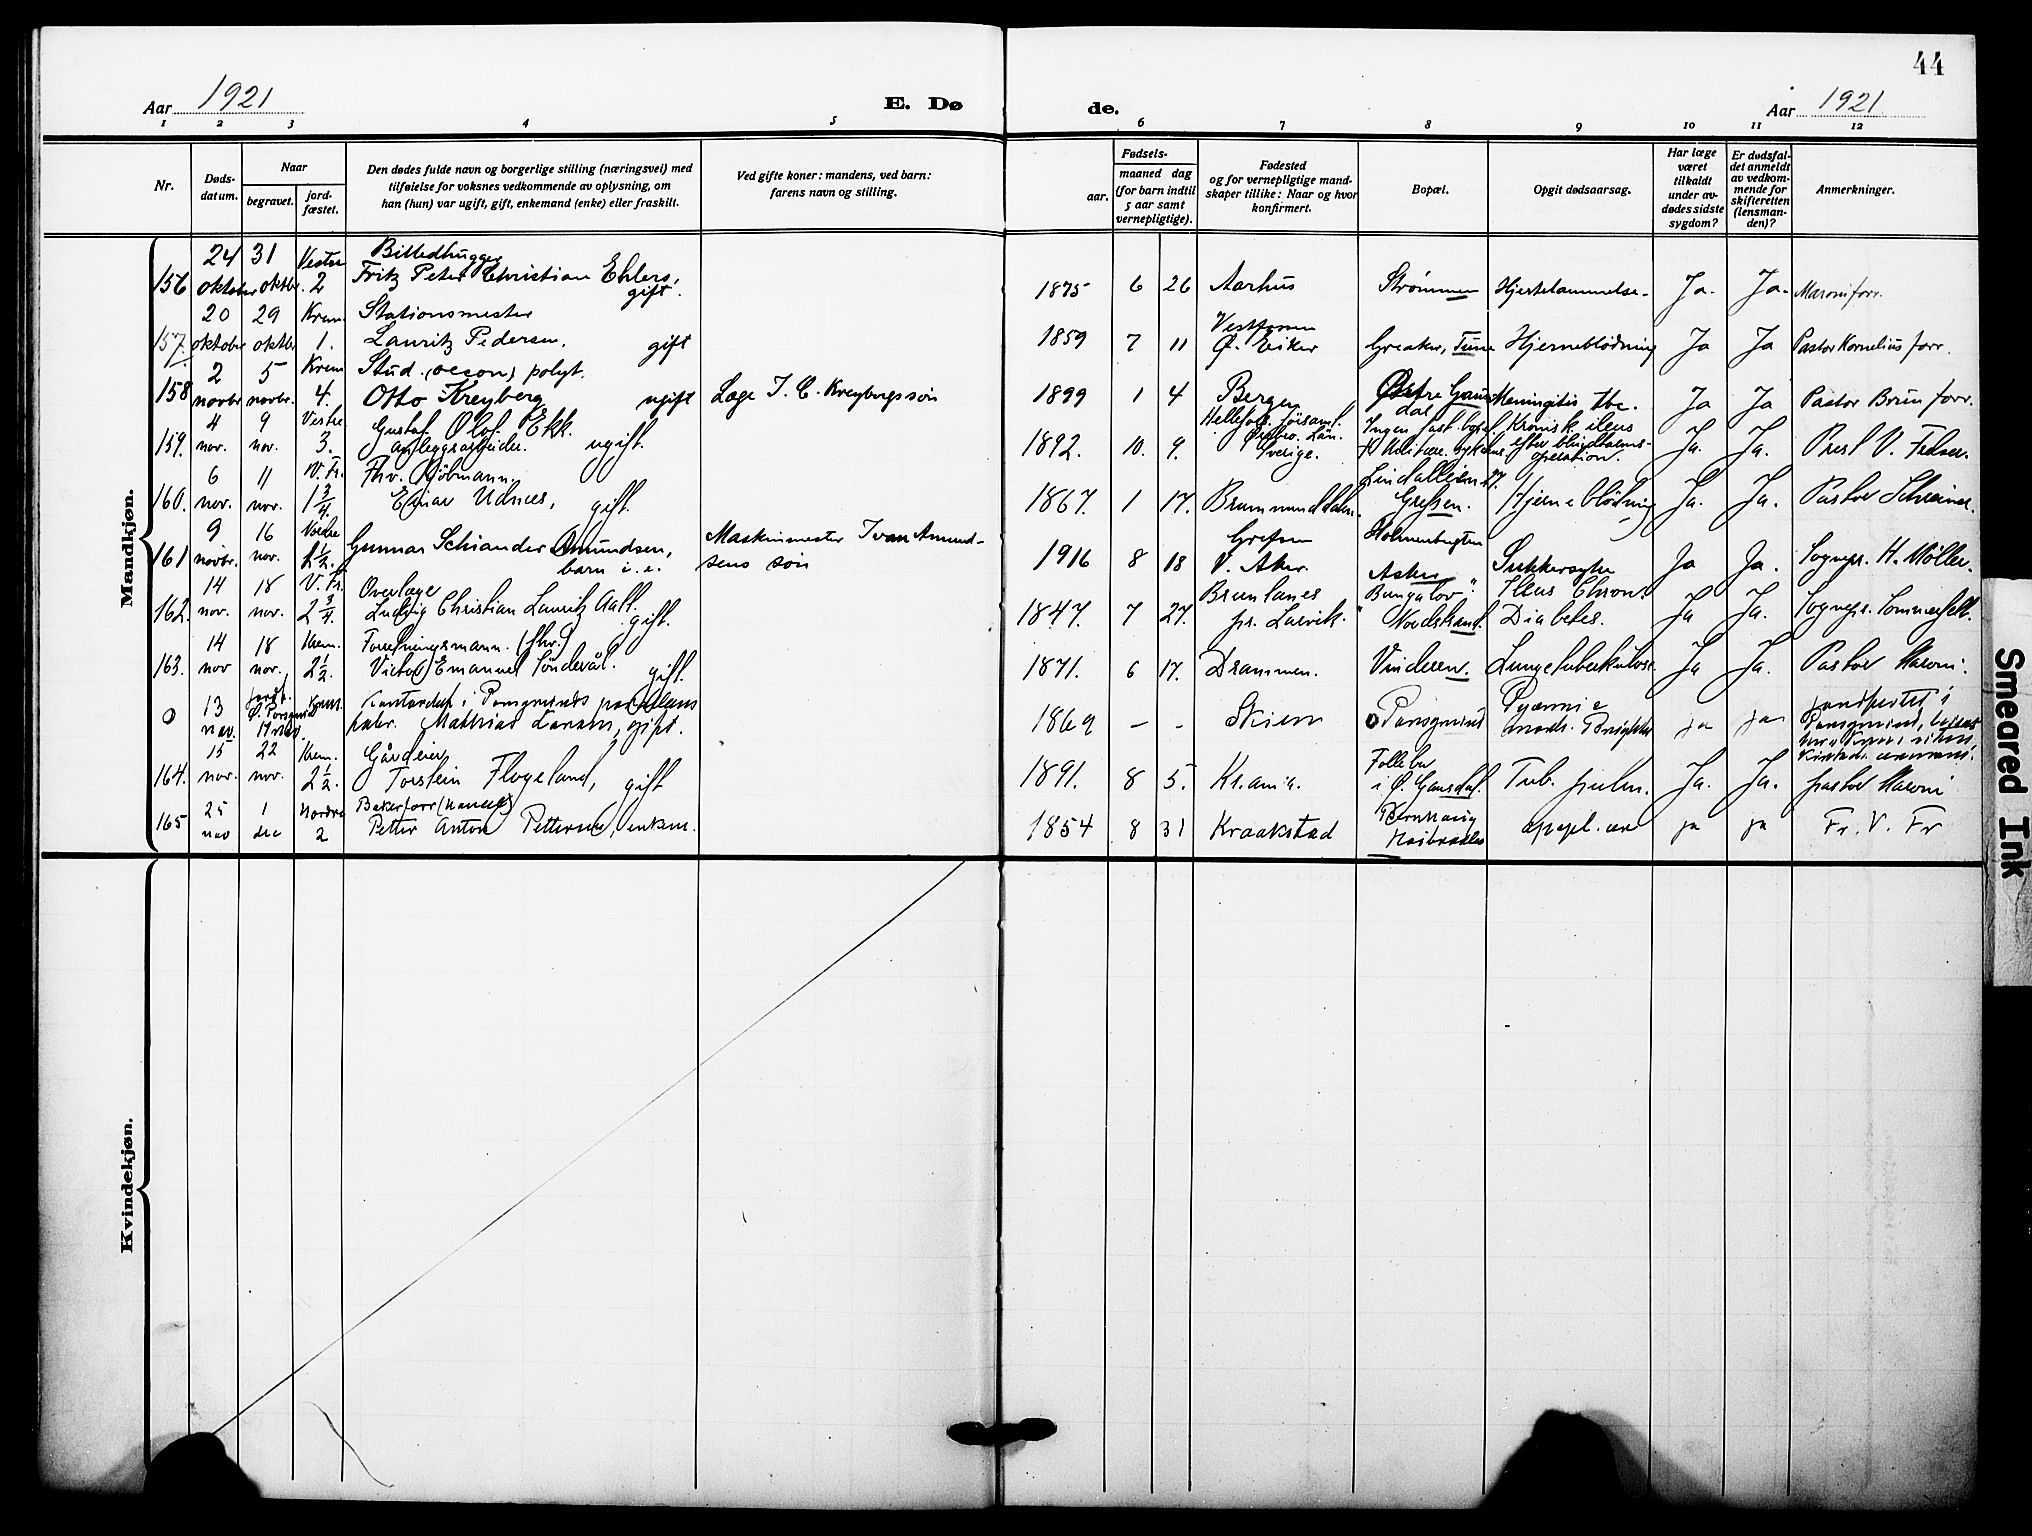 44
Aar 1921
E. Dø
de.
Aar 1921
1 2 3 4 5 6 7 8 9 10 11 12
Nr.
Døds-
datum.
Naar
begravet.
jord-
fæstet.
Den dødes fulde navn og borgerlige stilling (næringsvei) med
tilføielse for voksnes vedkommende av oplysning, om
han (hun) var ugift, gift, enkemand (enke) eller fraskilt.
Ved gifte koner: mandens, ved barn:
farens navn og stilling.
Fødsels-
aar.
maaned dag
(for barn indtil
5 aar samt
vernepligtige).
Fødested
og for vernepligtige mand-
skaper tillike: Naar og hvor
konfirmert.
Bopæl.
Opgit dødsaarsag.
Har læge
været
tilkaldt
under av-
dødes sidste
sygdom?
Er dødsfal-
det anmeldt
av vedkom-
mende for
skifteretten
(lensman-
den)?
Anmerkninger.
Mandkjøn.
24 31 Vestre Billedhugger
156 oktober oktbr. 2 Fritz Peter Christian Ehlers,
gift.
1875 6 26 Aarhus Strømmen Hjertelammelse. Ja. Ja. Maroni forr.
20 29 Krem. Stationsmester
157. oktober oktbr 1. Lauritz Pedersen. gift
Vestfossen
1859 7 11 Ø. Eiker Greaker, Tune Hjerneblødning Ja Ja Pastor Kornelius forr.
2 5 Krem Stud. (oecon) polyt.
158 novbr novbr. 4. Otto Kreyberg ugift Læge J. C. Kreybergs søn
1899 1 4 Bergen Østre Gaus-
dal Meningitis tbc. Ja Ja Pastor Brun forr.
4 9 Vestre Gustaf Olof Ekk.
159. nov. nov. 3. Anleggsarbeider. ugift.
1892. 10. 9. Örebro Län.
Sverige. Ingen fast bopæl Kronisk ileus
efter blindtarms-
operation. Ja. Ja.
6 11 V. Fr. Fhv. Kjøbmann.
160. nov. nov. 1 3/4. Einar Udnæs, gift.
1867. 1 17. Brummunddalen. Lindalléen 27.
Grefsen. Hjerneblødning Ja. Ja. Pastor Schreiner.
9 16 Vestre
161 novbr. nov. 1 1/2. Gunnar Schiander Amundsen,
barn i. e. Maskinmester Ivan Amund-
sens søn
Grefsen Holmenbugten
1916 8 18 V. Aker. Asker Sukkersyke Ja Ja. Sognepr. H. Møller.
14 18 V. Fr. Overlæge
162. nov. nov. 2 3/4. Ludvig Christian Lauritz Aall. gift.
Brunlanes "Bungalov". Ileus Chron.
1847. 7 27. pr. Larvik. Nordstrand. Diabetes. Ja Ja. Sognepr. Sommerfelt.
14 18 Krem. Forretningsmann. (fhv.)
163. nov nov. 2 1/2. Victor Emanuel Sønderål. gift.
1871. 6 17. Drammen. Vinderen. Lungetuberkulose Ja Ja. Pastor Maroni.
0 13 Krem.
nov. 17 nov. fabr. Mathias Larsen, gift.
1869 - - Skien Porsgrund ja ja jordfæstet i
Porsgrund,
15 22 Krem. Gårdeier
164. nov. nov. 2 1/2. Torstein Flogeland, gift
1891. 8 5. Kr.ania. Follebu
i Ø. Gausdal. Tub. pulm. Ja. Ja. pastor Maroni
25 1 Nordre
165 nov dec 2 Petter Anton Pettersen, enkem.
1854 8 31 Kraakstad apopl. cer ja ja Fr. V. Fr
Kvindekjøn.
Smeared Ink